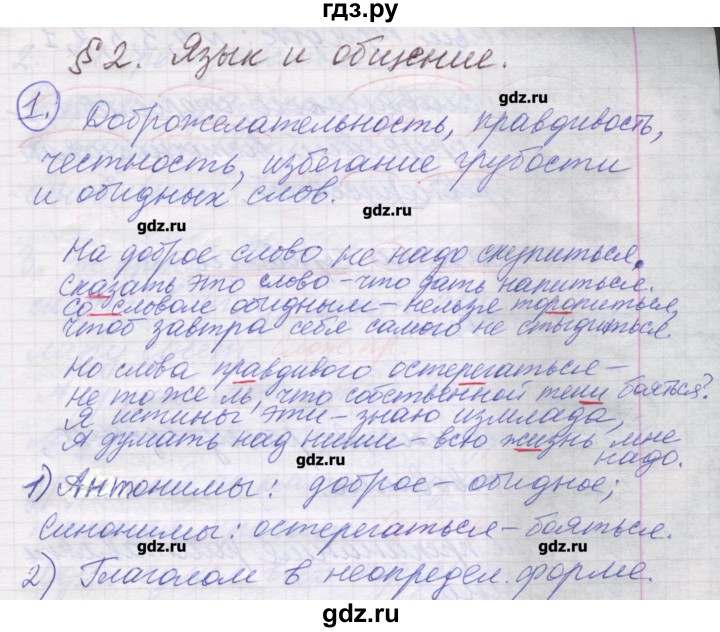 гдз.ру
§2. Язык и общение.
1. Доброжелательность, правдивость,
gdz.ru
честность, избегание грубости
и обидных слов.
gdz.ru
gdz.ru
На доброе слово не надо скупиться,
Сказать это слово – что дать напиться.
Со словом обидным – нельзя торопиться,
чтоб завтра себя самого не стыдиться.
gdz.ru
gdz.ru
Но слова правдивого остерегаться –
Не то же ль, что собственной тени бояться?
Я истины эти – знаю измлада,
А думать над ними – всю жизнь мне
надо.
gdz.ru
gdz.ru
1) Антонимы: доброе – обидное;
Синонимы: остерегаться – бояться.
gdz.ru
gdz.ru
2) Глаголом в неопредел. форме.
gdz.ru